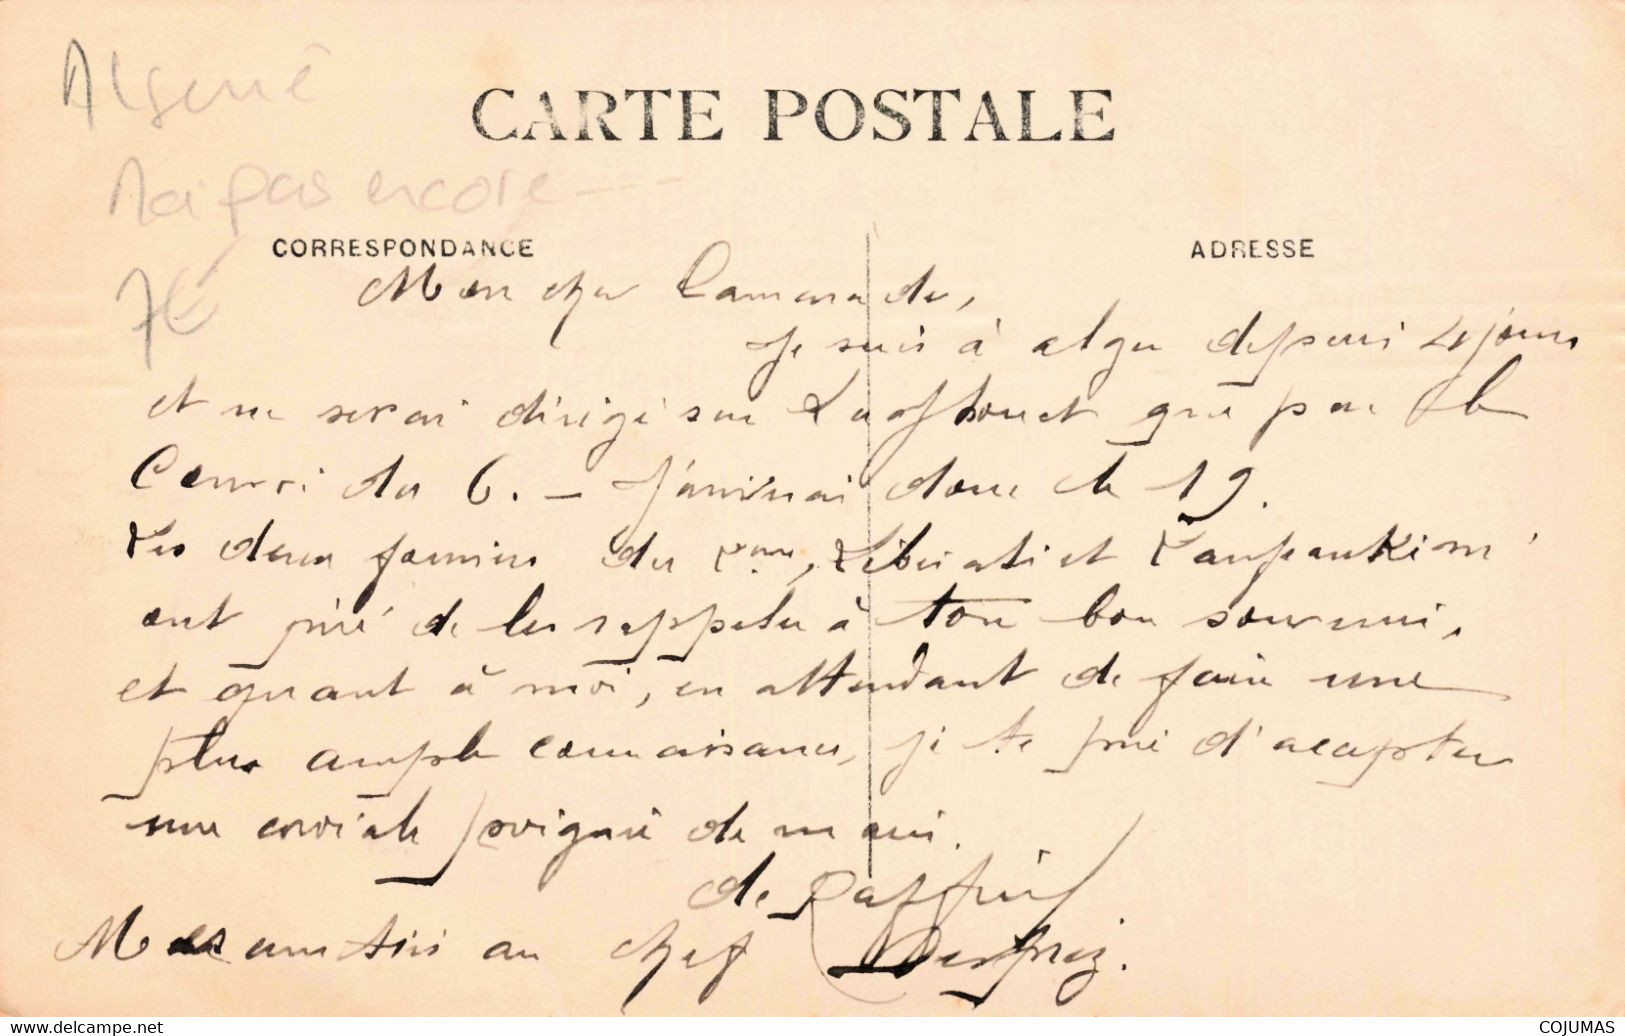 Algerie
N'ai pas encore ---
7€
CARTE POSTALE
CORRESPONDANCE
ADRESSE
Mon cher Camarade,
Je suis à alger depuis 4 jours
et ne serai dirigé sur Laghouat que par le
Convoi du 6. — J'arriverai donc le 19.
Les deux fourriers du et
ont prié de les rappeler à ton bon souvenir,
et quant à moi, en attendant de faire une
plus ample connaissance, je te prie d'accepter
une cordiale poignée de main.
de
Mes amitiés au chef Desprez.
www.delcampe.net
COJUMAS